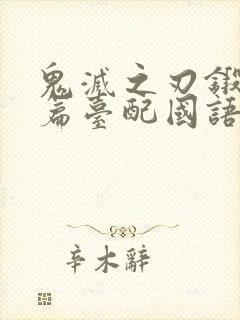 鬼滅之刃鍛
篇臺配國語
辛木辭